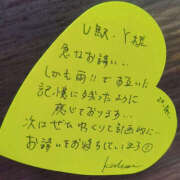 U駅・Y様
急なお誘い…
しかも雨!!でも互いに
記憶に残ったように
感じております…
次はぜひゆっくり計画的に…
お誘いをお待ちしています